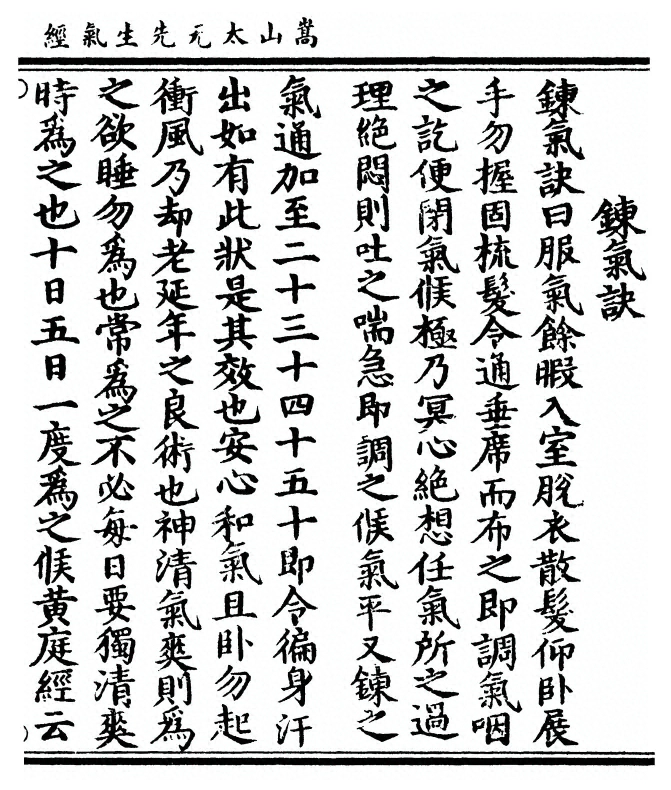 嵩山太无先生氣經
鍊氣訣
鍊氣訣曰服氣餘暇入室脫衣散髮仰卧展
手勿握固梳髮令通垂席而布之即調氣咽
之訖便閉氣候極乃冥心絕想任氣所之過
理絕悶則吐之喘急即調之候氣平又鍊之
氣通加至二十三十四十五十即令徧身汗
出如有此狀是其效也安心和氣且卧勿起
衝風乃却老延年之良術也神清氣爽則為
之欲睡勿為也常為之不必每日要獨清爽
時為之也十日五日一度為之候黃庭經云